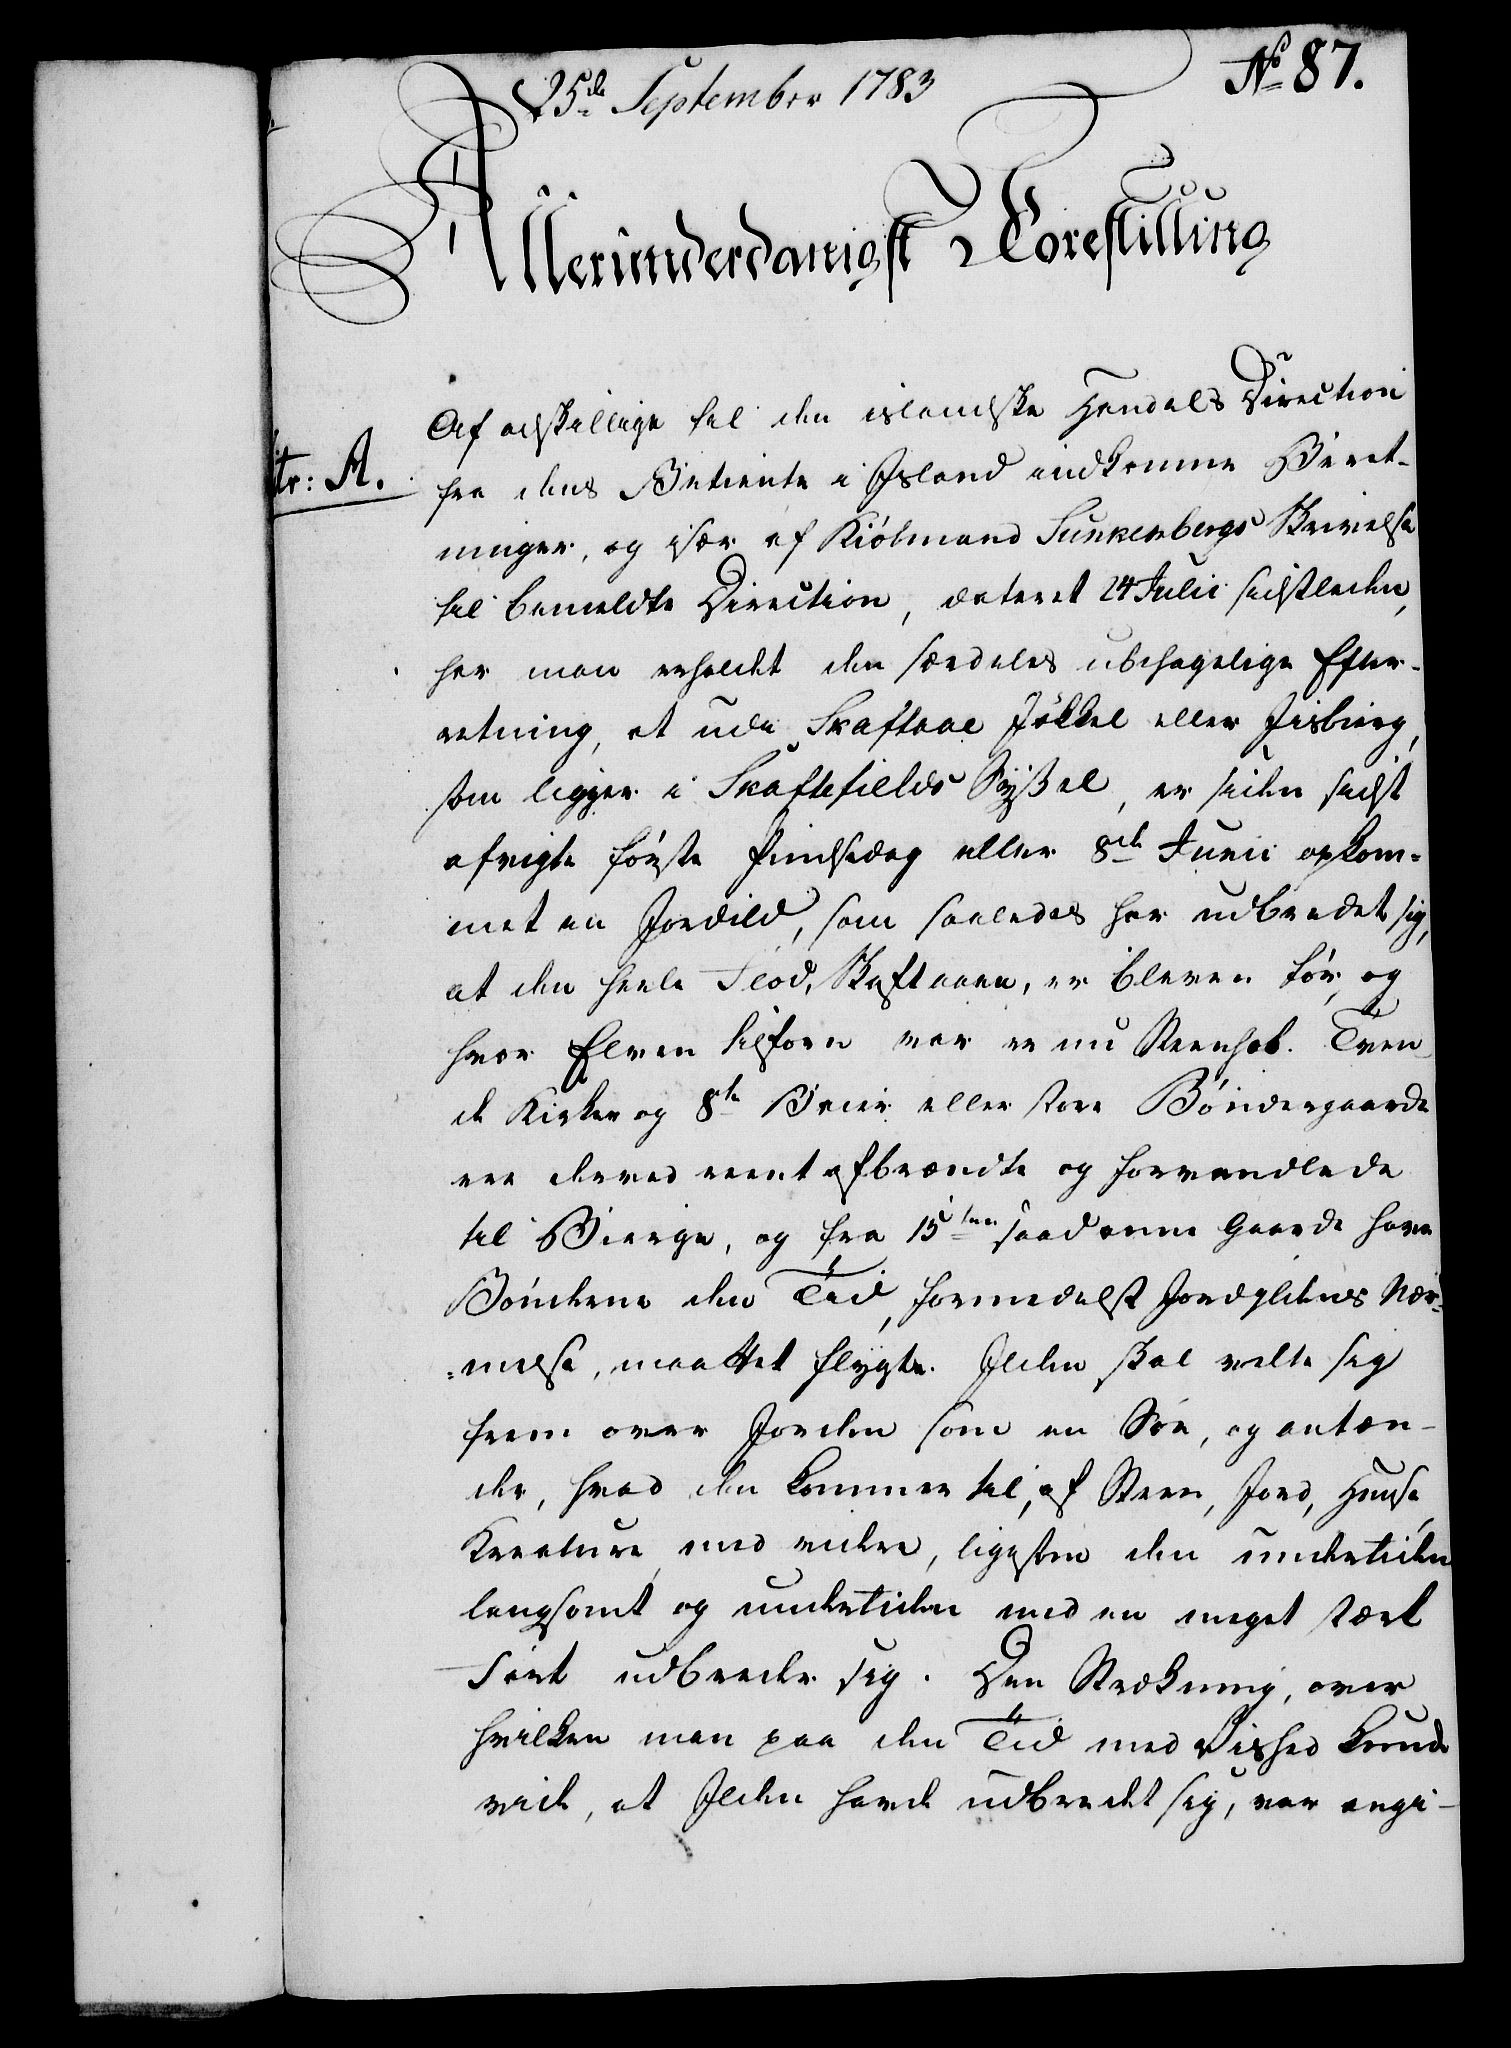 25de September 1783
No 87.
Allerunderdanigst Forestilling
tr: A.
Af adskillige til den islandske Handels Direction
fra dens Betiente i Island indkomne Beret-
ninger, og især af Kiøbmand Sunkenbergs Skrivelse
til bemeldte Direction, dateret 24 Julii sidstleden,
har man erholdt den særdeles ubehagelige Efter-
retning, at udi Skaftaae Jökkel eller Jisbierg,
som ligger i Skaftefields Syßel, er siden sidst
afvigte første Pindsedag eller 8de Junii opkom-
met en Jordild, som saaledes har udbredet sig,
at den heele Flod, Skaftaaen, er bleven tør, og
hvor Elven tilforn var er nu Steenhob. Tven
de Kirker og 8te Beier eller store Bøndergaarde
ere derved reent afbrændte og forvandlede
til Bierge, og fra 15ten saadanne Gaarde have
Bønderne den Tid, formedelst Jordyldens Nær-
-melse, maattet flygte. Ilden skal velte sig
frem over Jorden som en Söe, og antæn-
der, hvad den kommer til, af Steen, Jord, Huuse,
Kreature, med videre, ligesom den undertiden
langsomt og undertiden med en meget stærk
Fart udbreder sig. Den Strækning, over
hvilken man paa den Tid med Vished kunde
vide, at Ilden havde udbredet sig, var angi-